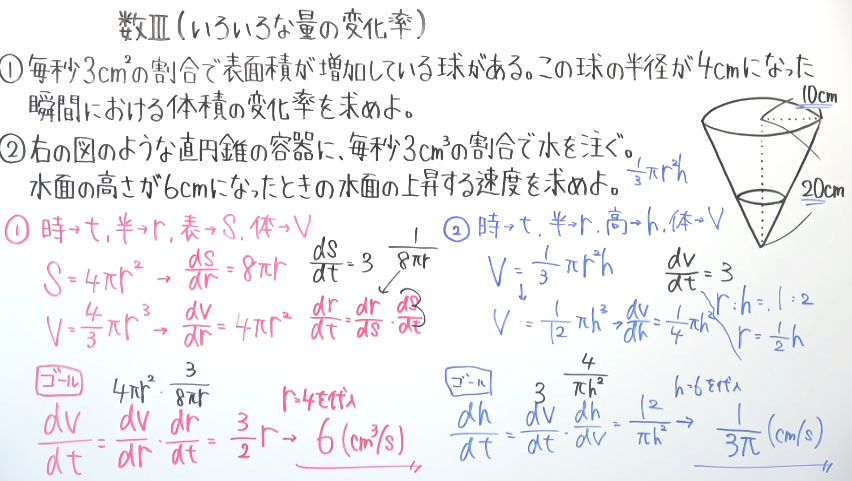 数Ⅲ(いろいろな量の変化率)
① 毎秒3cm²の割合で表面積が増加している球がある。この球の半径が4cmになった
瞬間における体積の変化率を求めよ。
② 右の図のような直円錐の容器に、毎秒3cm³の割合で水を注ぐ。
水面の高さが6cmになったときの水面の上昇する速度を求めよ。
1/3 πr²h
10cm
20cm
① 時→t, 半→r, 表→S, 体→V
S=4πr² → ds/dr = 8πr
ds/dt = 3
1/8πr
V=4/3 πr³ → dv/dr = 4πr²
dr/dt = dr/ds · ds/dt
ゴール
4πr² · 3/8πr
r=4を代入
dv/dt = dv/dr · dr/dt = 3/2 r → 6(cm³/s)
② 時→t, 半→r, 高→h, 体→V
V = 1/3 πr²h
dv/dt = 3
↓
r:h = 1:2
V = 1/12 πh³ → dv/dh = 1/4 πh²
r = 1/2 h
ゴール
3
4/πh²
h=6を代入
dh/dt = dv/dt · dh/dv = 12/πh² → 1/3π (cm/s)